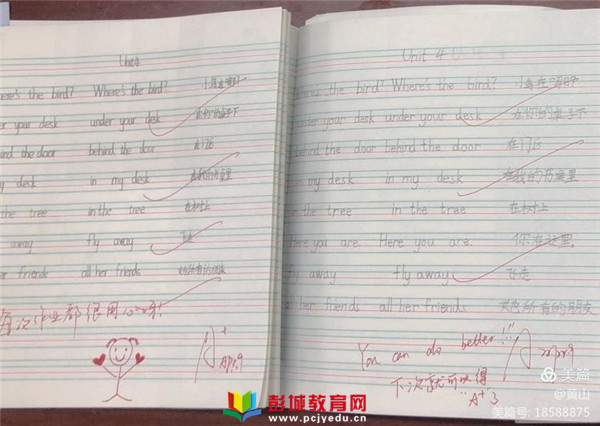 Unit4
ere's the bird? Where's the bird?
er your desk under your desk 在你的桌子下
ind the door behind the door 在门后
my desk in my desk
the tree in the tree 在树上
away fly away 飞走
er friends all her friends
每次作业都很用心哦!
A+
Apr.9
Unit 4
the bird? Where's the bird? 小鸟在哪呀?
under your desk under your desk 在你的桌子下
behind the door behind the door 在门后
in my desk in my desk 在我的书桌里
the tree in the tree 在树上
Here you are. Here you are. 你在这里.
fly away fly away 飞走
all her friends all her friends 她所有的朋友
You can do better!!!
下次就可以得
"A+"
A
Apr.9
彭城教育网
www.pcjyedu.cn
美篇
@黄山
美篇号: 18588875